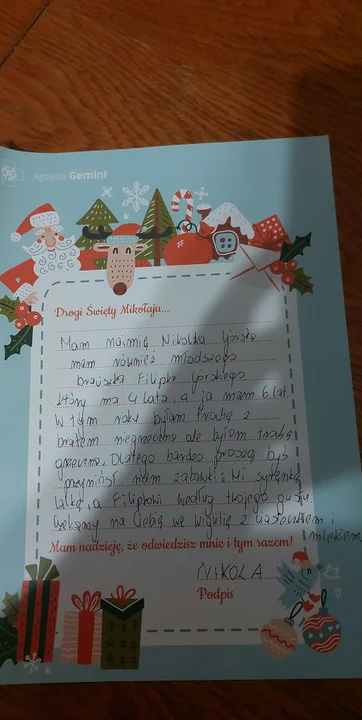 Apteka Gemini
Drogi Święty Mikołaju...
Mam na imię Nikolka Górska
mam również młodszego
braciszka Filipka Górskiego
który ma 4 lata, a ja mam 6 lat.
W tym roku byłam trochę z
bratem niegrzeczna ale byłam trochę
grzeczna. Dlatego bardzo proszę byś
przyniósł nam zabawki: Mi syrenkę
lalkę, a Filipkowi według twojego gustu.
Czekamy na Ciebie we wigilię z ciasteczkiem i
mlekiem.
Mam nadzieję, że odwiedzisz mnie i tym razem!
NIKOLA
Podpis